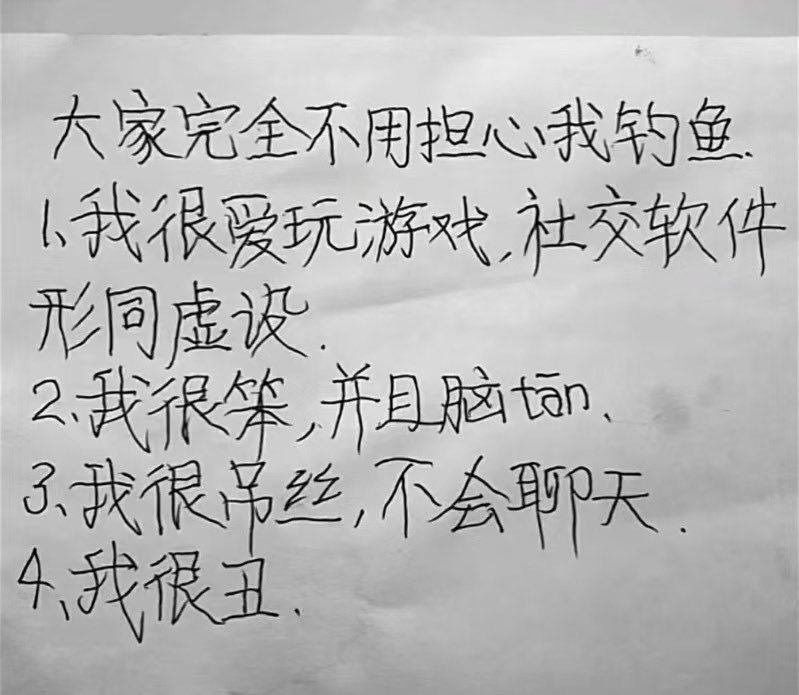 大家完全不用担心我钓鱼.
1、我很爱玩游戏,社交软件
形同虚设.
2、我很笨,并且脑tān、
3、我很吊丝,不会聊天.
4、我很丑.